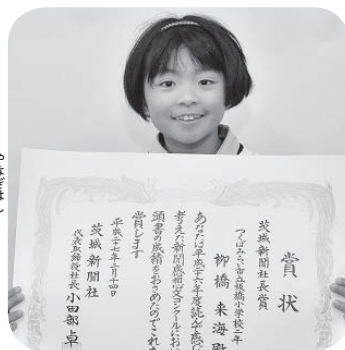 賞状
茨城新聞社長賞
つくばみらい市立板橋小学校二年
柳橋来海殿
あなたは平成二十六年度読んで感じ
考えた新聞感想文コンクールにおい
頭書の成績をおさめたのでこれを
賞します
平成二十七年二月十四日
茨城新聞社
代表取締役社長 小田部卓